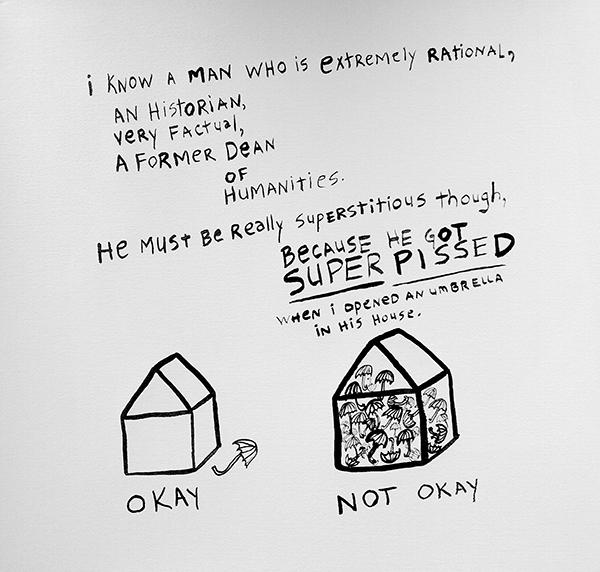 i KNOW A MAN WHO is extremely RAtioNAL,
AN HistORiAN,
very FACtual,
A FORMeR DeAN
OF
HUMANities.
He Must Be Really superstitious though,
Because He GOT
SUPER PISSED
WHEN i OPENED AN UMBRELLA
iN His House.
OKAY
NOT OKAY